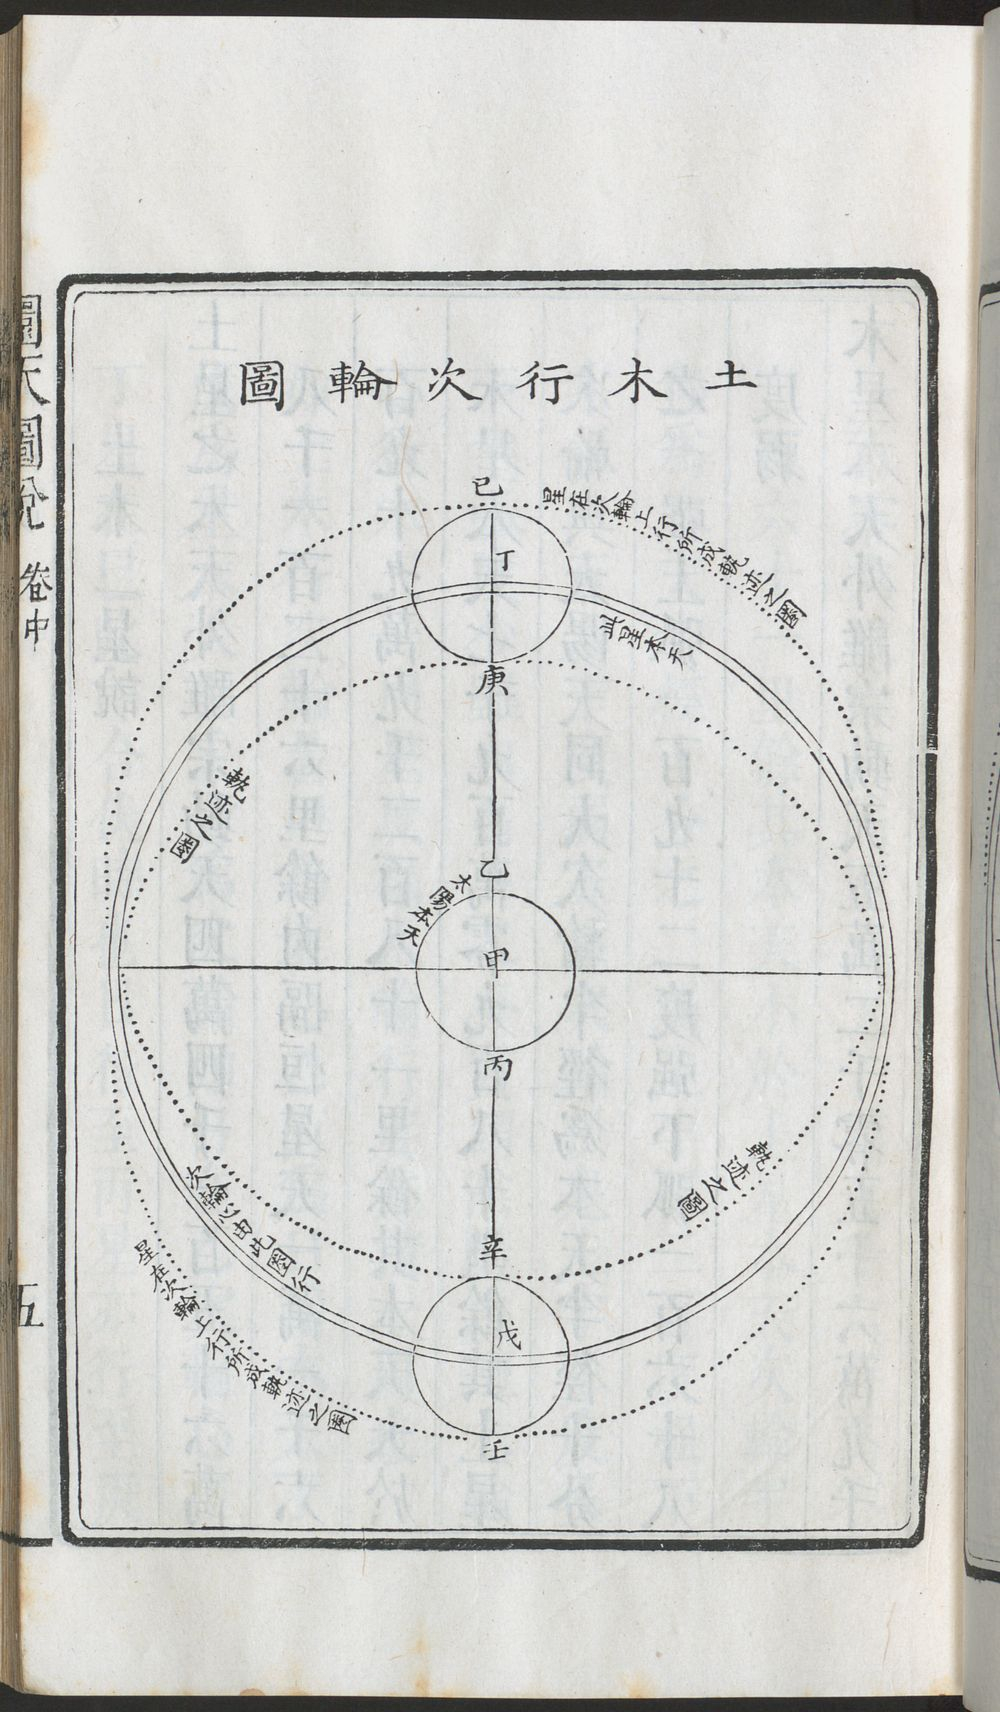 土木行次輪圖
己
星在次輪上行所成軌迹之圈
丁
此星本天
庚
軌迹之圈
乙
太陽本天
甲
丙
軌迹之圈
辛
次輪心由此圈行
星在次輪上行所成軌迹之圈
戊
壬
圜天圖說
卷中
五